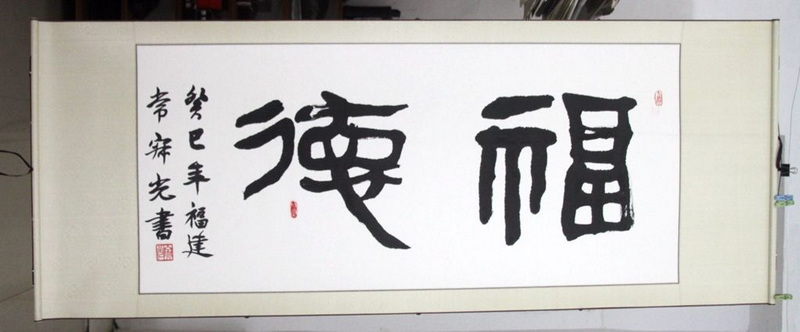 福德
癸巳年福建
常寂光書